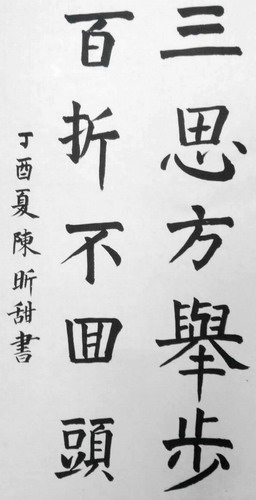 三思方舉步
百折不回頭
丁酉夏陳昕甜書